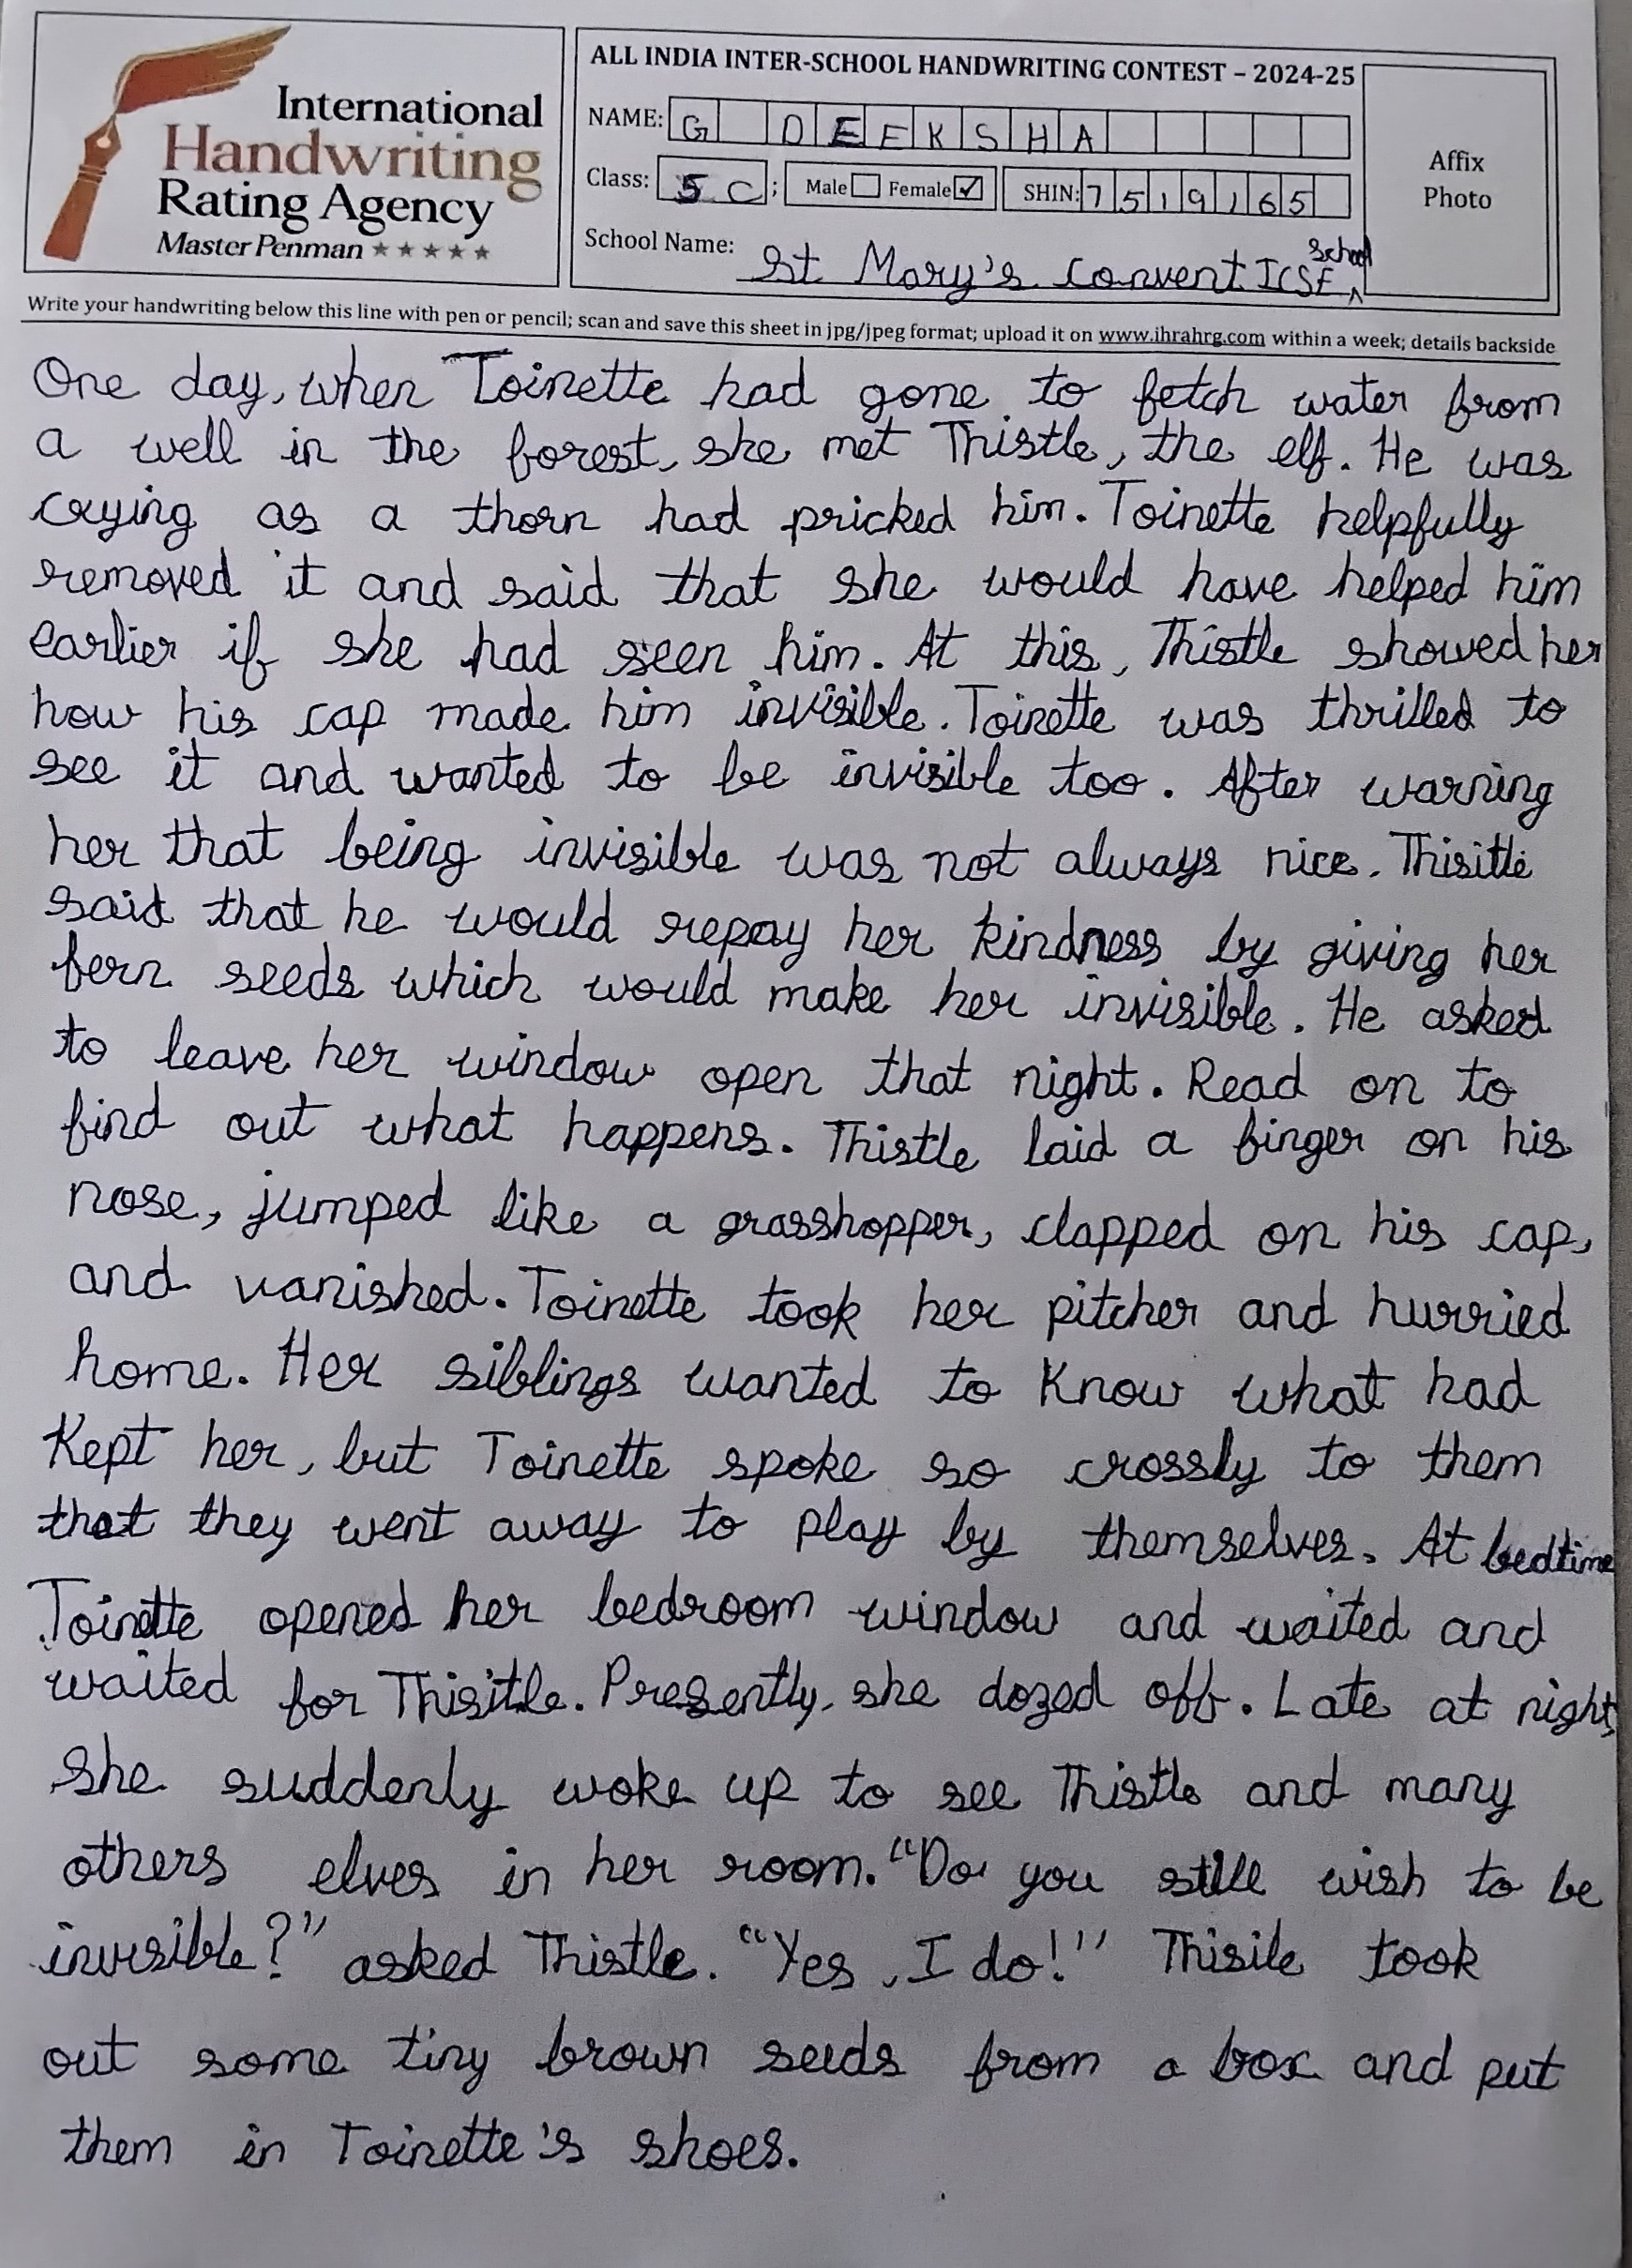 International
Handwriting
Rating Agency
Master Penman ★★★★★
ALL INDIA INTER-SCHOOL HANDWRITING CONTEST – 2024-25
NAME: G DEEKSHA
Class: 5 C; Male Female ✓ SHIN: 7519165
School Name: St Mary's convent ICSE School
Affix
Photo
Write your handwriting below this line with pen or pencil; scan and save this sheet in jpg/jpeg format; upload it on www.ihrahrg.com within a week; details backside
One day, when Toinette had gone to fetch water from
a well in the forest, she met Thistle, the elf. He was
crying as a thorn had pricked him. Toinette helpfully
removed it and said that she would have helped him
earlier if she had seen him. At this, Thistle showed her
how his cap made him invisible. Toinette was thrilled to
see it and wanted to be invisible too. After warning
her that being invisible was not always nice. Thisitle
said that he would repay her kindness by giving her
fern seeds which would make her invisible. He asked
to leave her window open that night. Read on to
find out what happens. Thistle laid a finger on his
nose, jumped like a grasshopper, clapped on his cap,
and vanished. Toinette took her pitcher and hurried
home. Her siblings wanted to Know what had
Kept her, but Toinette spoke so crossly to them
that they went away to play by themselves. At bedtime
Toinette opened her bedroom window and waited and
waited for Thisitle. Presently, she dozed off. Late at night
she suddenly woke up to see Thistle and many
others elves in her room. "Do you still wish to be
invisible?" asked Thistle. "Yes, I do!" Thisile took
out some tiny brown seeds from a box and put
them in Toinette's shoes.